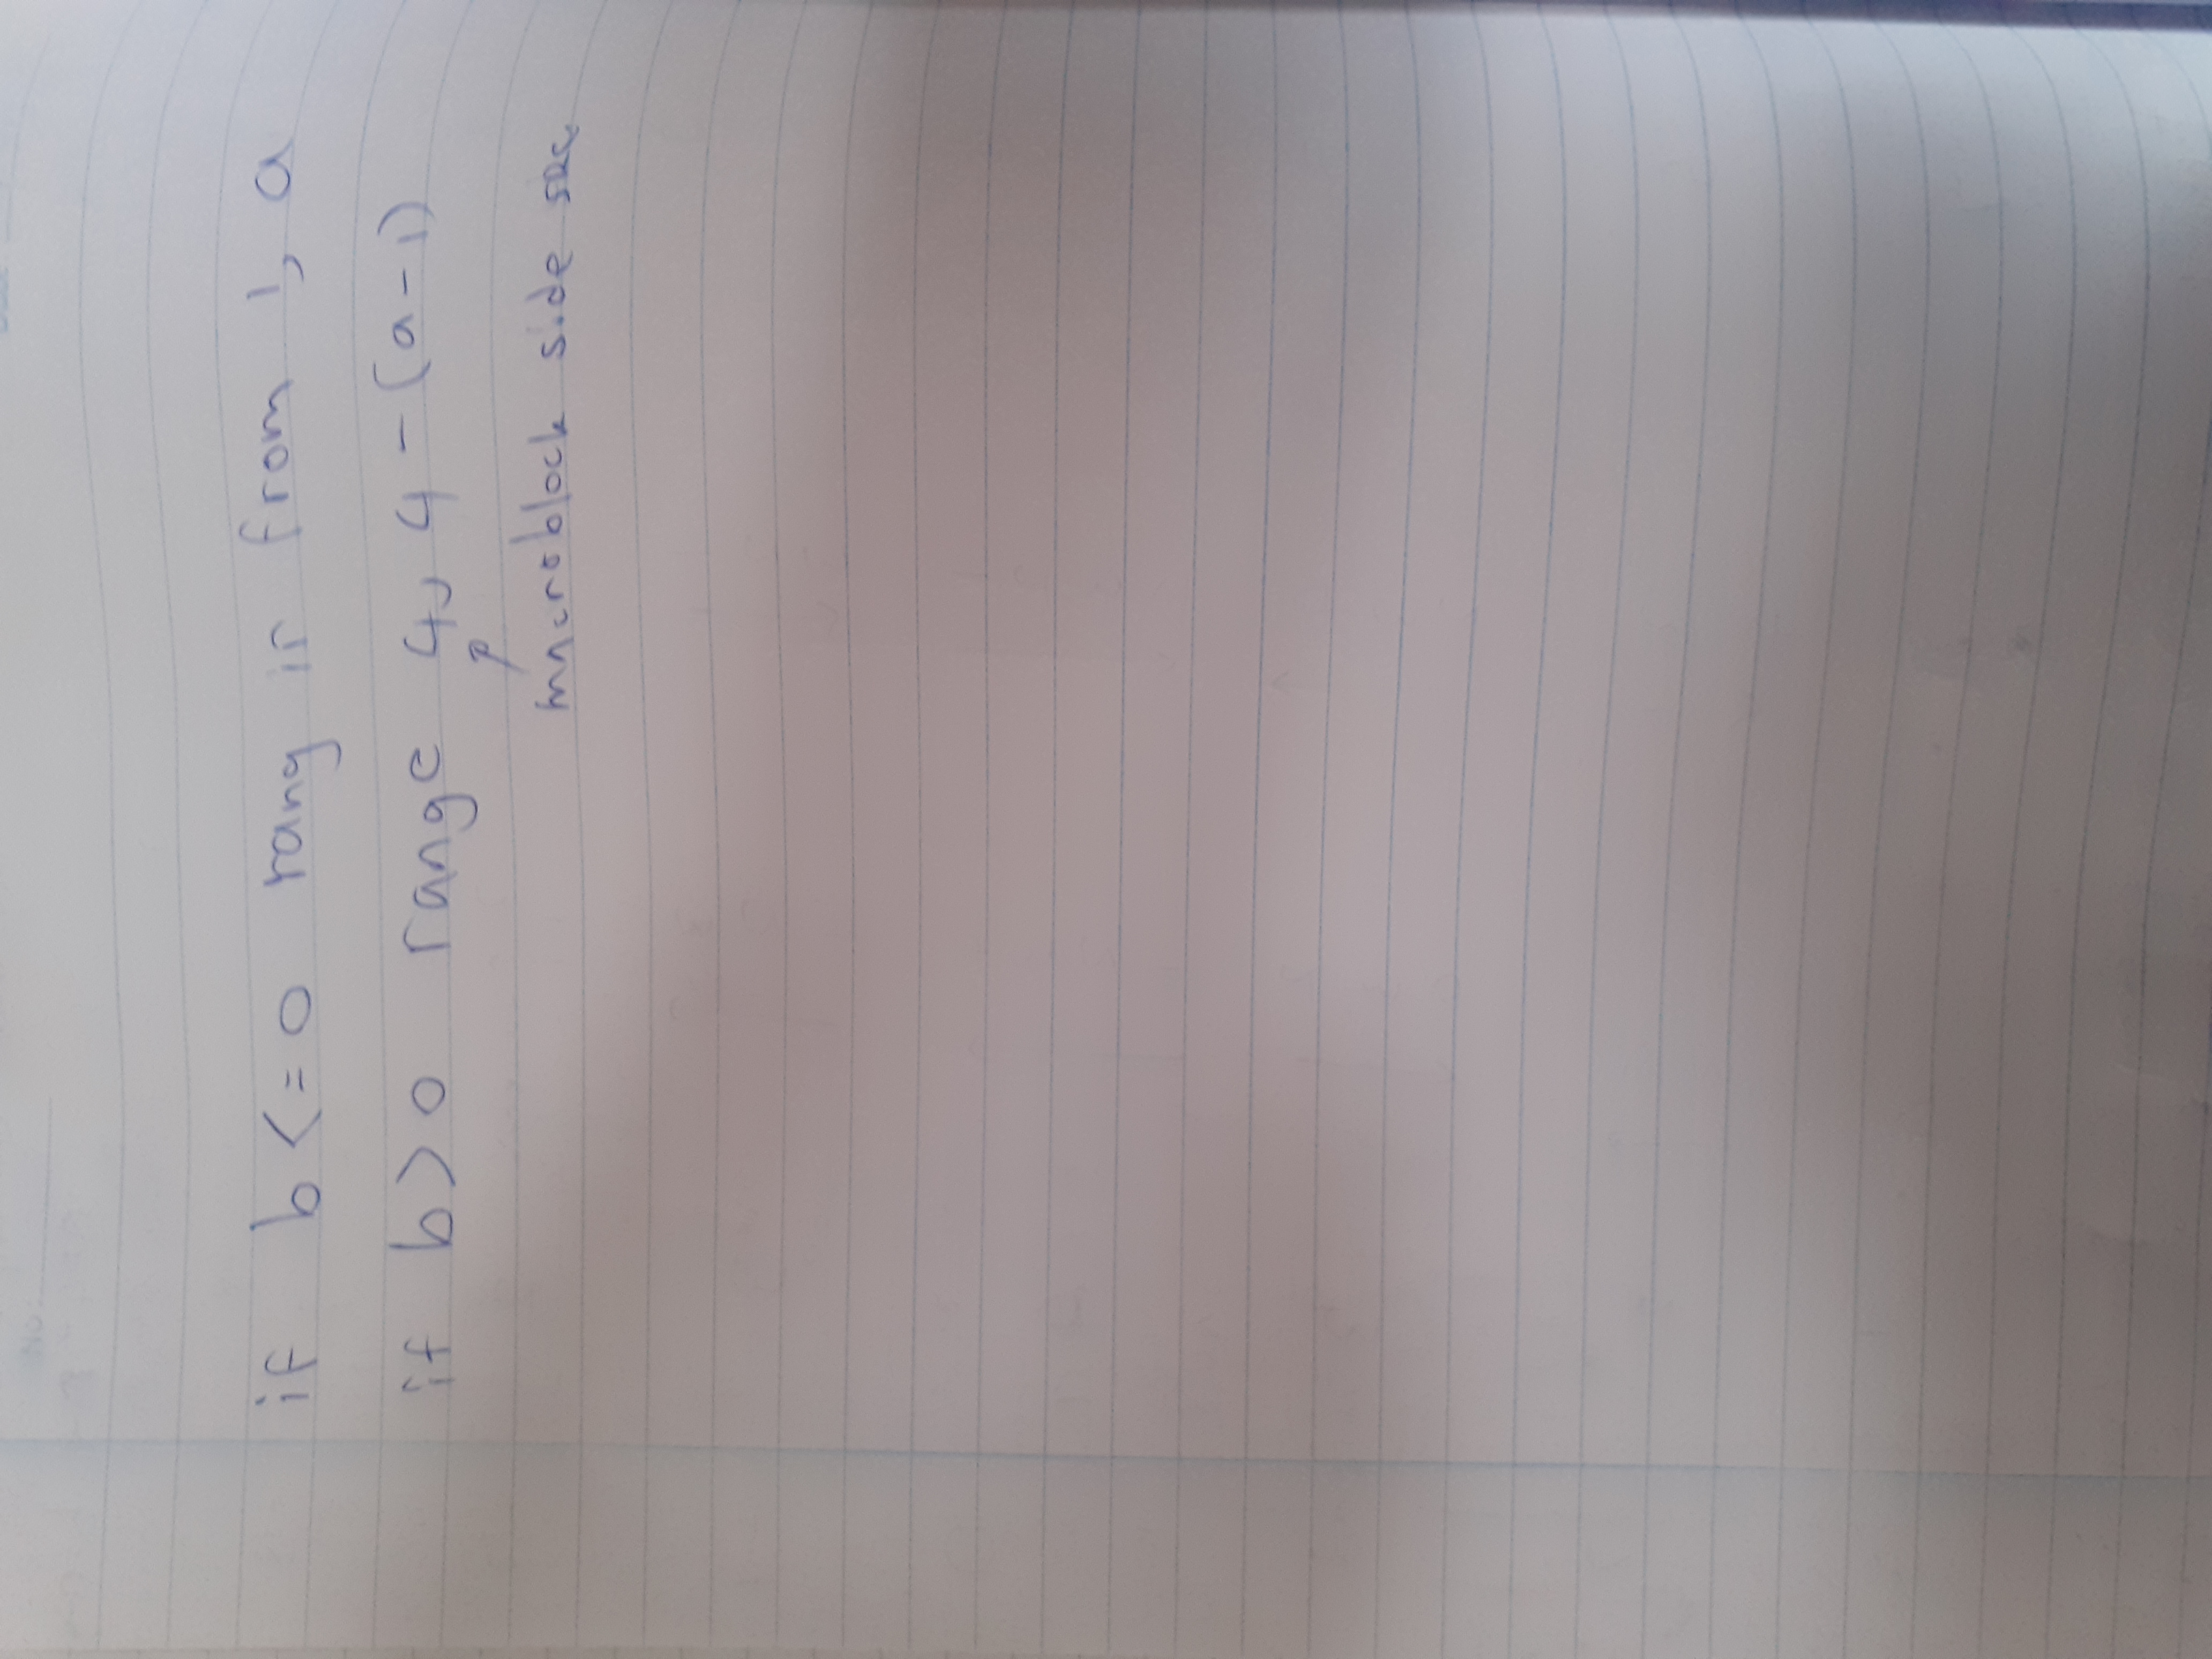 NO:
if b <= 0 rang is from 1, a
if b > 0 range 4, 4 - (a - 1)
macroblock side